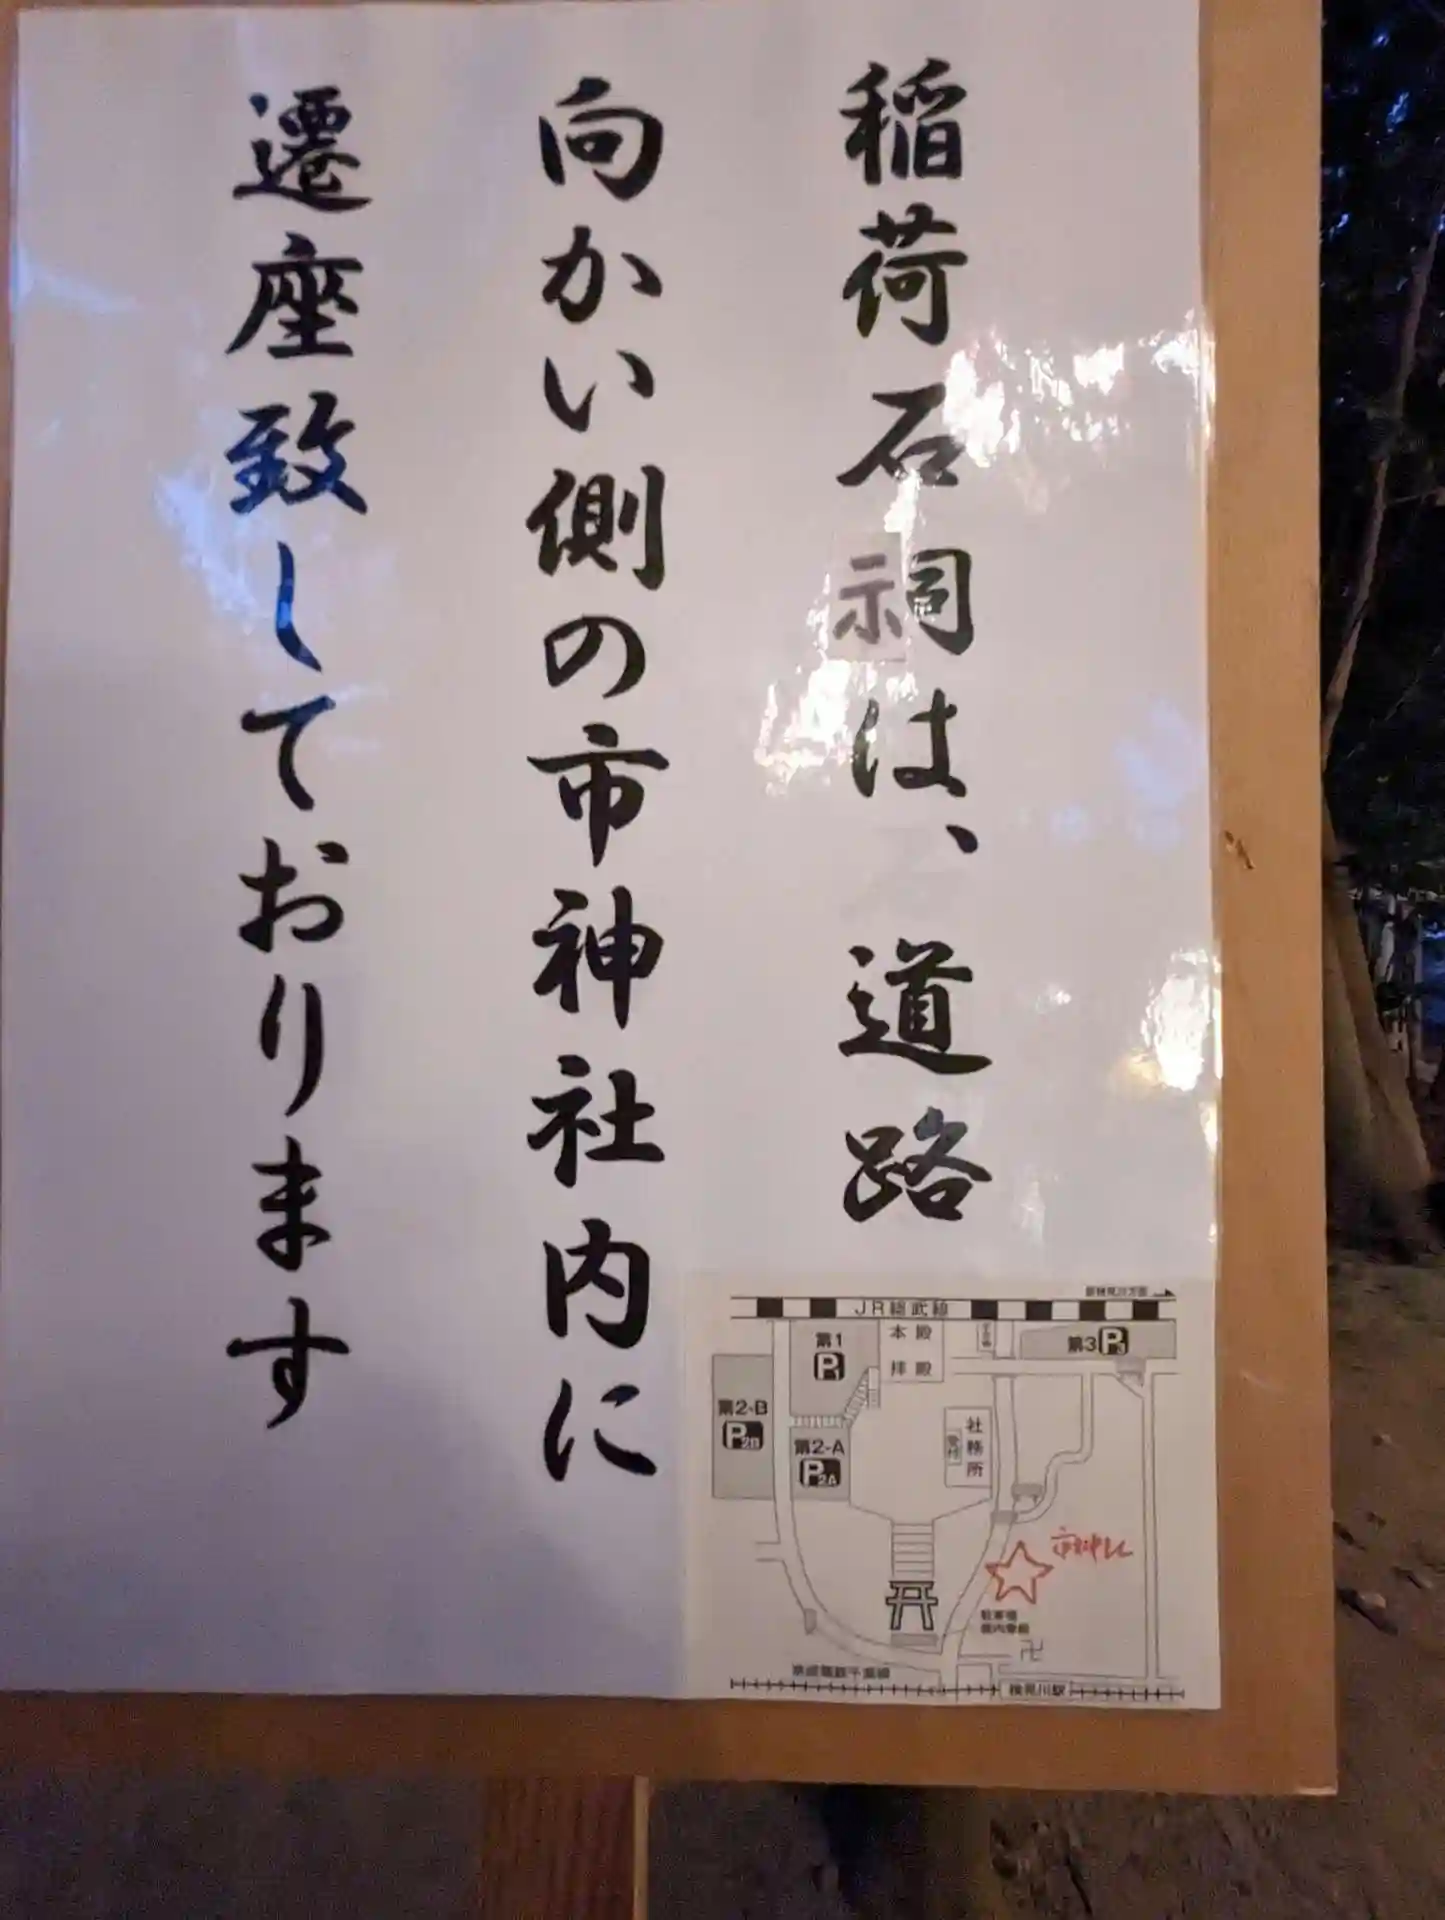 稲荷石祠は、道路
向かい側の市神社内に
遷座致しております
JR総武線
本殿
拝殿
第1
P1
第3 P3
第2-B
P2B
第2-A
P2A
社務所
受付
市神社
駐車場
案内看板
卍
京成電鉄千葉線
検見川駅